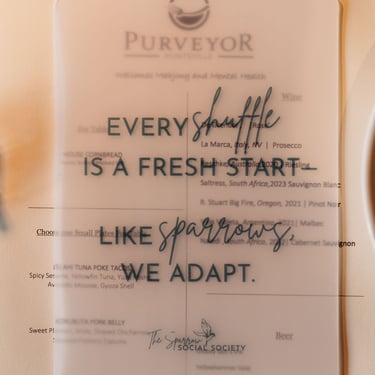 PURVEYOR
HUNTSVILLE
Welcomes Mahjong and Mental Health
Wine
EVERY shuffle
La Marca, Italy, NV | Prosecco
HOUSE CORNBREAD
Riesling
IS A FRESH START–
Saltress, South Africa, 2023 Sauvignon Blanc
R. Stuart Big Fire, Oregon, 2021 | Pinot Noir
LIKE sparrows,
Argentina, 2021 | Malbec
Choose one Small Plates
South Africa, 2022 | Cabernet Sauvignon
WE ADAPT.
AHI TUNA POKE TACOS
Spicy Sesame, Yellowfin Tuna,
Avocado Mousse, Gyoza Shell
The Sparrow
SOCIAL SOCIETY
KUROBUTA PORK BELLY
Beer
Sweet